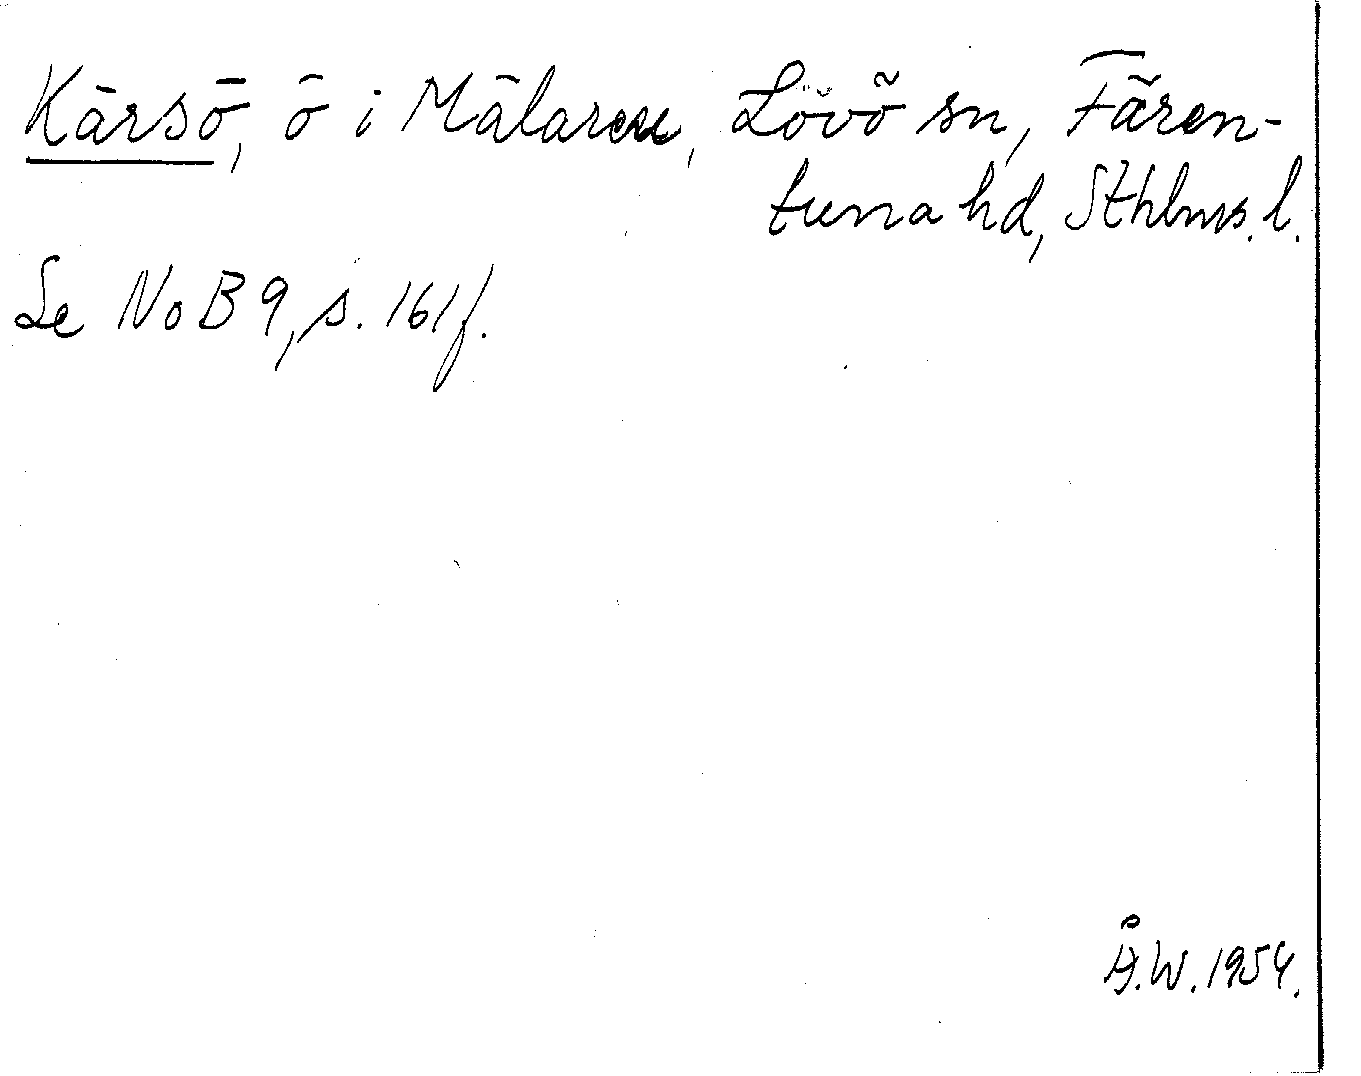 Kärsö, ö i Mälaren, Lövö sn, Fären-
tuna hd, Sthlms. l.
Se NoB 9, s. 161 f.
Å.W. 1954.